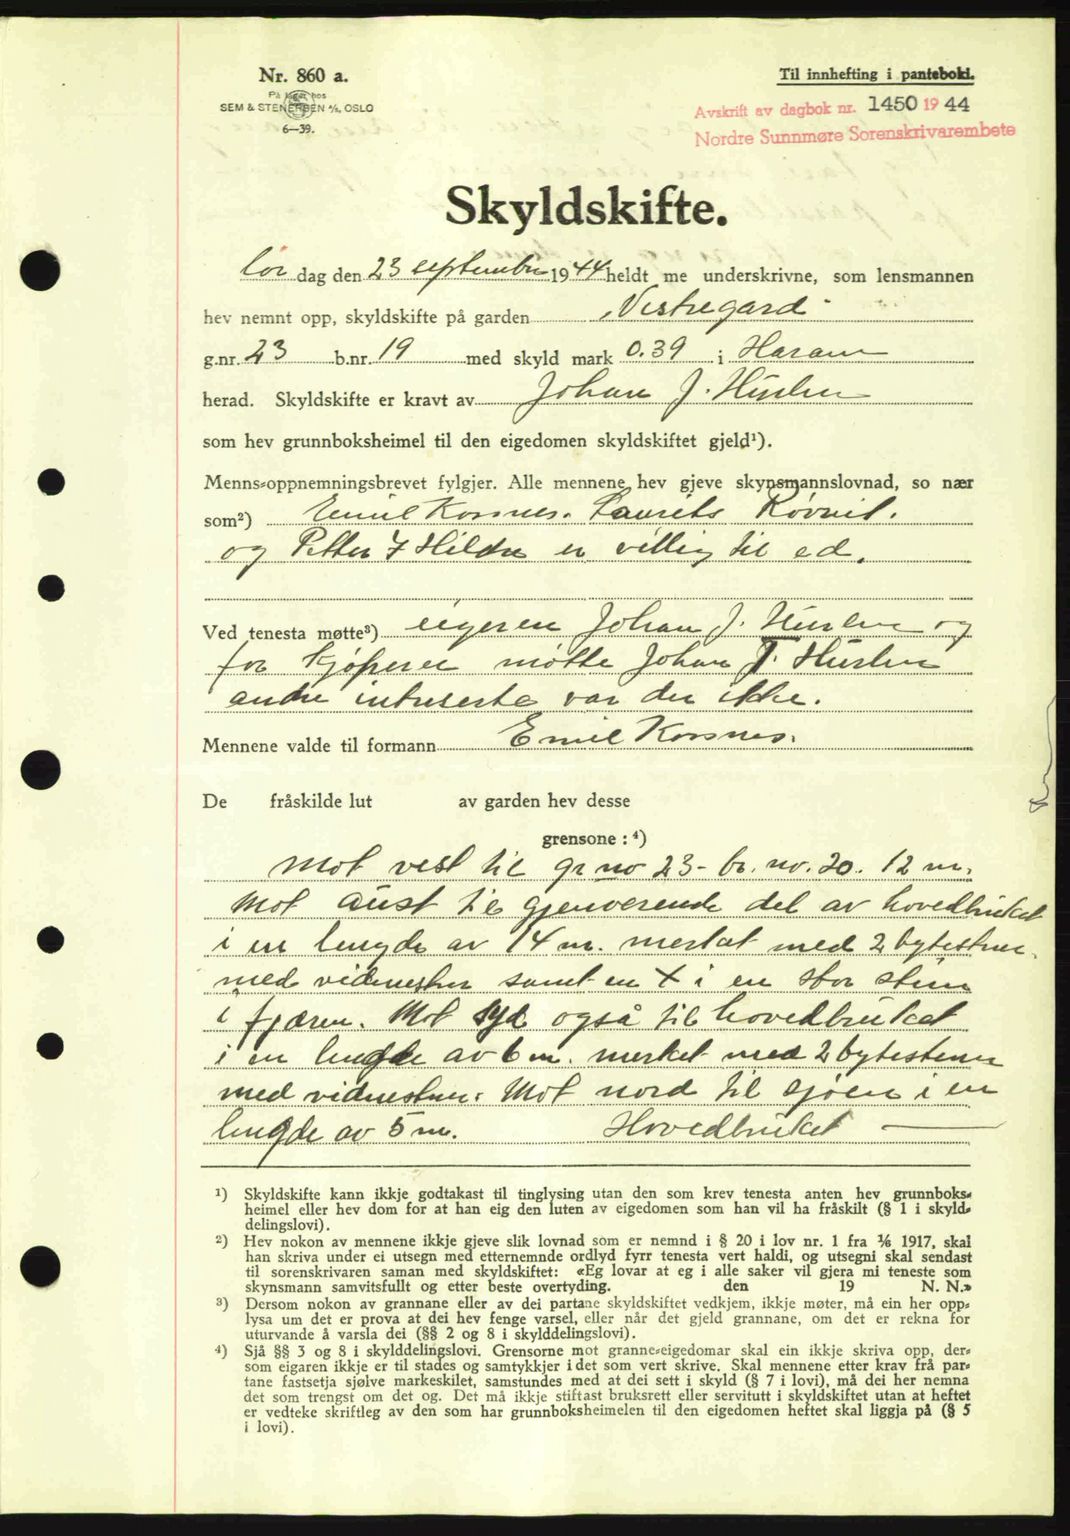 Nr. 860 a.
På lager hos
SEM & STENERSEN A/S, OSLO
6—39.
Til innhefting i pantebok.
Avskrift av dagbok nr. 1450 19 44
Nordre Sunnmøre Sorenskrivarembete
Skyldskifte.
lør dag den 23 september 1944 heldt me underskrivne, som lensmannen
hev nemnt opp, skyldskifte på garden Vestregard
g.nr. 23 b.nr. 19 med skyld mark 0.39 i Haram
herad. Skyldskifte er kravt av Johan J. Huslen
som hev grunnboksheimel til den eigedomen skyldskiftet gjeld¹).
Menns-oppnemningsbrevet fylgjer. Alle mennene hev gjeve skynsmannslovnad, so nær
som²) Emil Korsnes. Laurits Røvik.
og Petter I Hildre er villig til ed.
Ved tenesta møtte³) eigeren Johan J. Huslen og
for kjøperen møtte Johan T. Huslen
andre intreserte var der ikke.
Mennene valde til formann Emil Korsnes.
De fråskilde lut av garden hev desse
grensone : ⁴)
Mot vest til gr no 23- br. no. 20. 12 m.
Mot aust til gjenverende del av hovedbruket
i en lengde av 14 m. merkat med 2 bytestener
med vidnesten samt en X i en stor stein
i fjæren. Mot syd også til hovedbruket
i en lengde av 6 m. merket med 2 bytestener
med vidnesten. Mot nord til sjøen i en
lengde av 5 m. Hovedbruket —
¹) Skyldskifte kann ikkje godtakast til tinglysing utan den som krev tenesta anten hev grunnboks-
heimel eller hev dom for at han eig den luten av eigedomen som han vil ha fråskilt (§ 1 i skyld-
delingslovi).
²) Hev nokon av mennene ikkje gjeve slik lovnad som er nemnd i § 20 i lov nr. 1 fra 1/6 1917, skal
han skriva under ei utsegn med etternemnde ordlyd fyrr tenesta vert haldi, og utsegni skal sendast
til sorenskrivaren saman med skyldskiftet: «Eg lovar at eg i alle saker vil gjera mi teneste som
skynsmann samvitsfullt og etter beste overtyding. den 19 N. N.»
³) Dersom nokon av grannane eller av dei partane skyldskiftet vedkjem, ikkje møter, må ein her opp-
lysa um det er prova at dei hev fenge varsel, eller når det gjeld grannane, om det er rekna for
uturvande å varsla dei (§§ 2 og 8 i skylddelingslovi).
⁴) Sjå §§ 3 og 8 i skylddelingslovi. Grensorne mot granne-eigedomar skal ein ikkje skriva opp, der-
som eigaren ikkje er til stades og samtykkjer i det som vert skrive. Skal mennene etter krav frå par-
tane fastsetja sjølve markeskilet, samstundes med at dei sett i skyld (§ 7 i lovi), må dei her nemna
det som trengst om det og. Det må ikkje stiftast bruksrett eller servitutt i skyldskiftet utan at heftet
er vedteke skriftleg av den som har grunnboksheimelen til den eigedomen heftet skal liggja på (§ 5
i lovi).